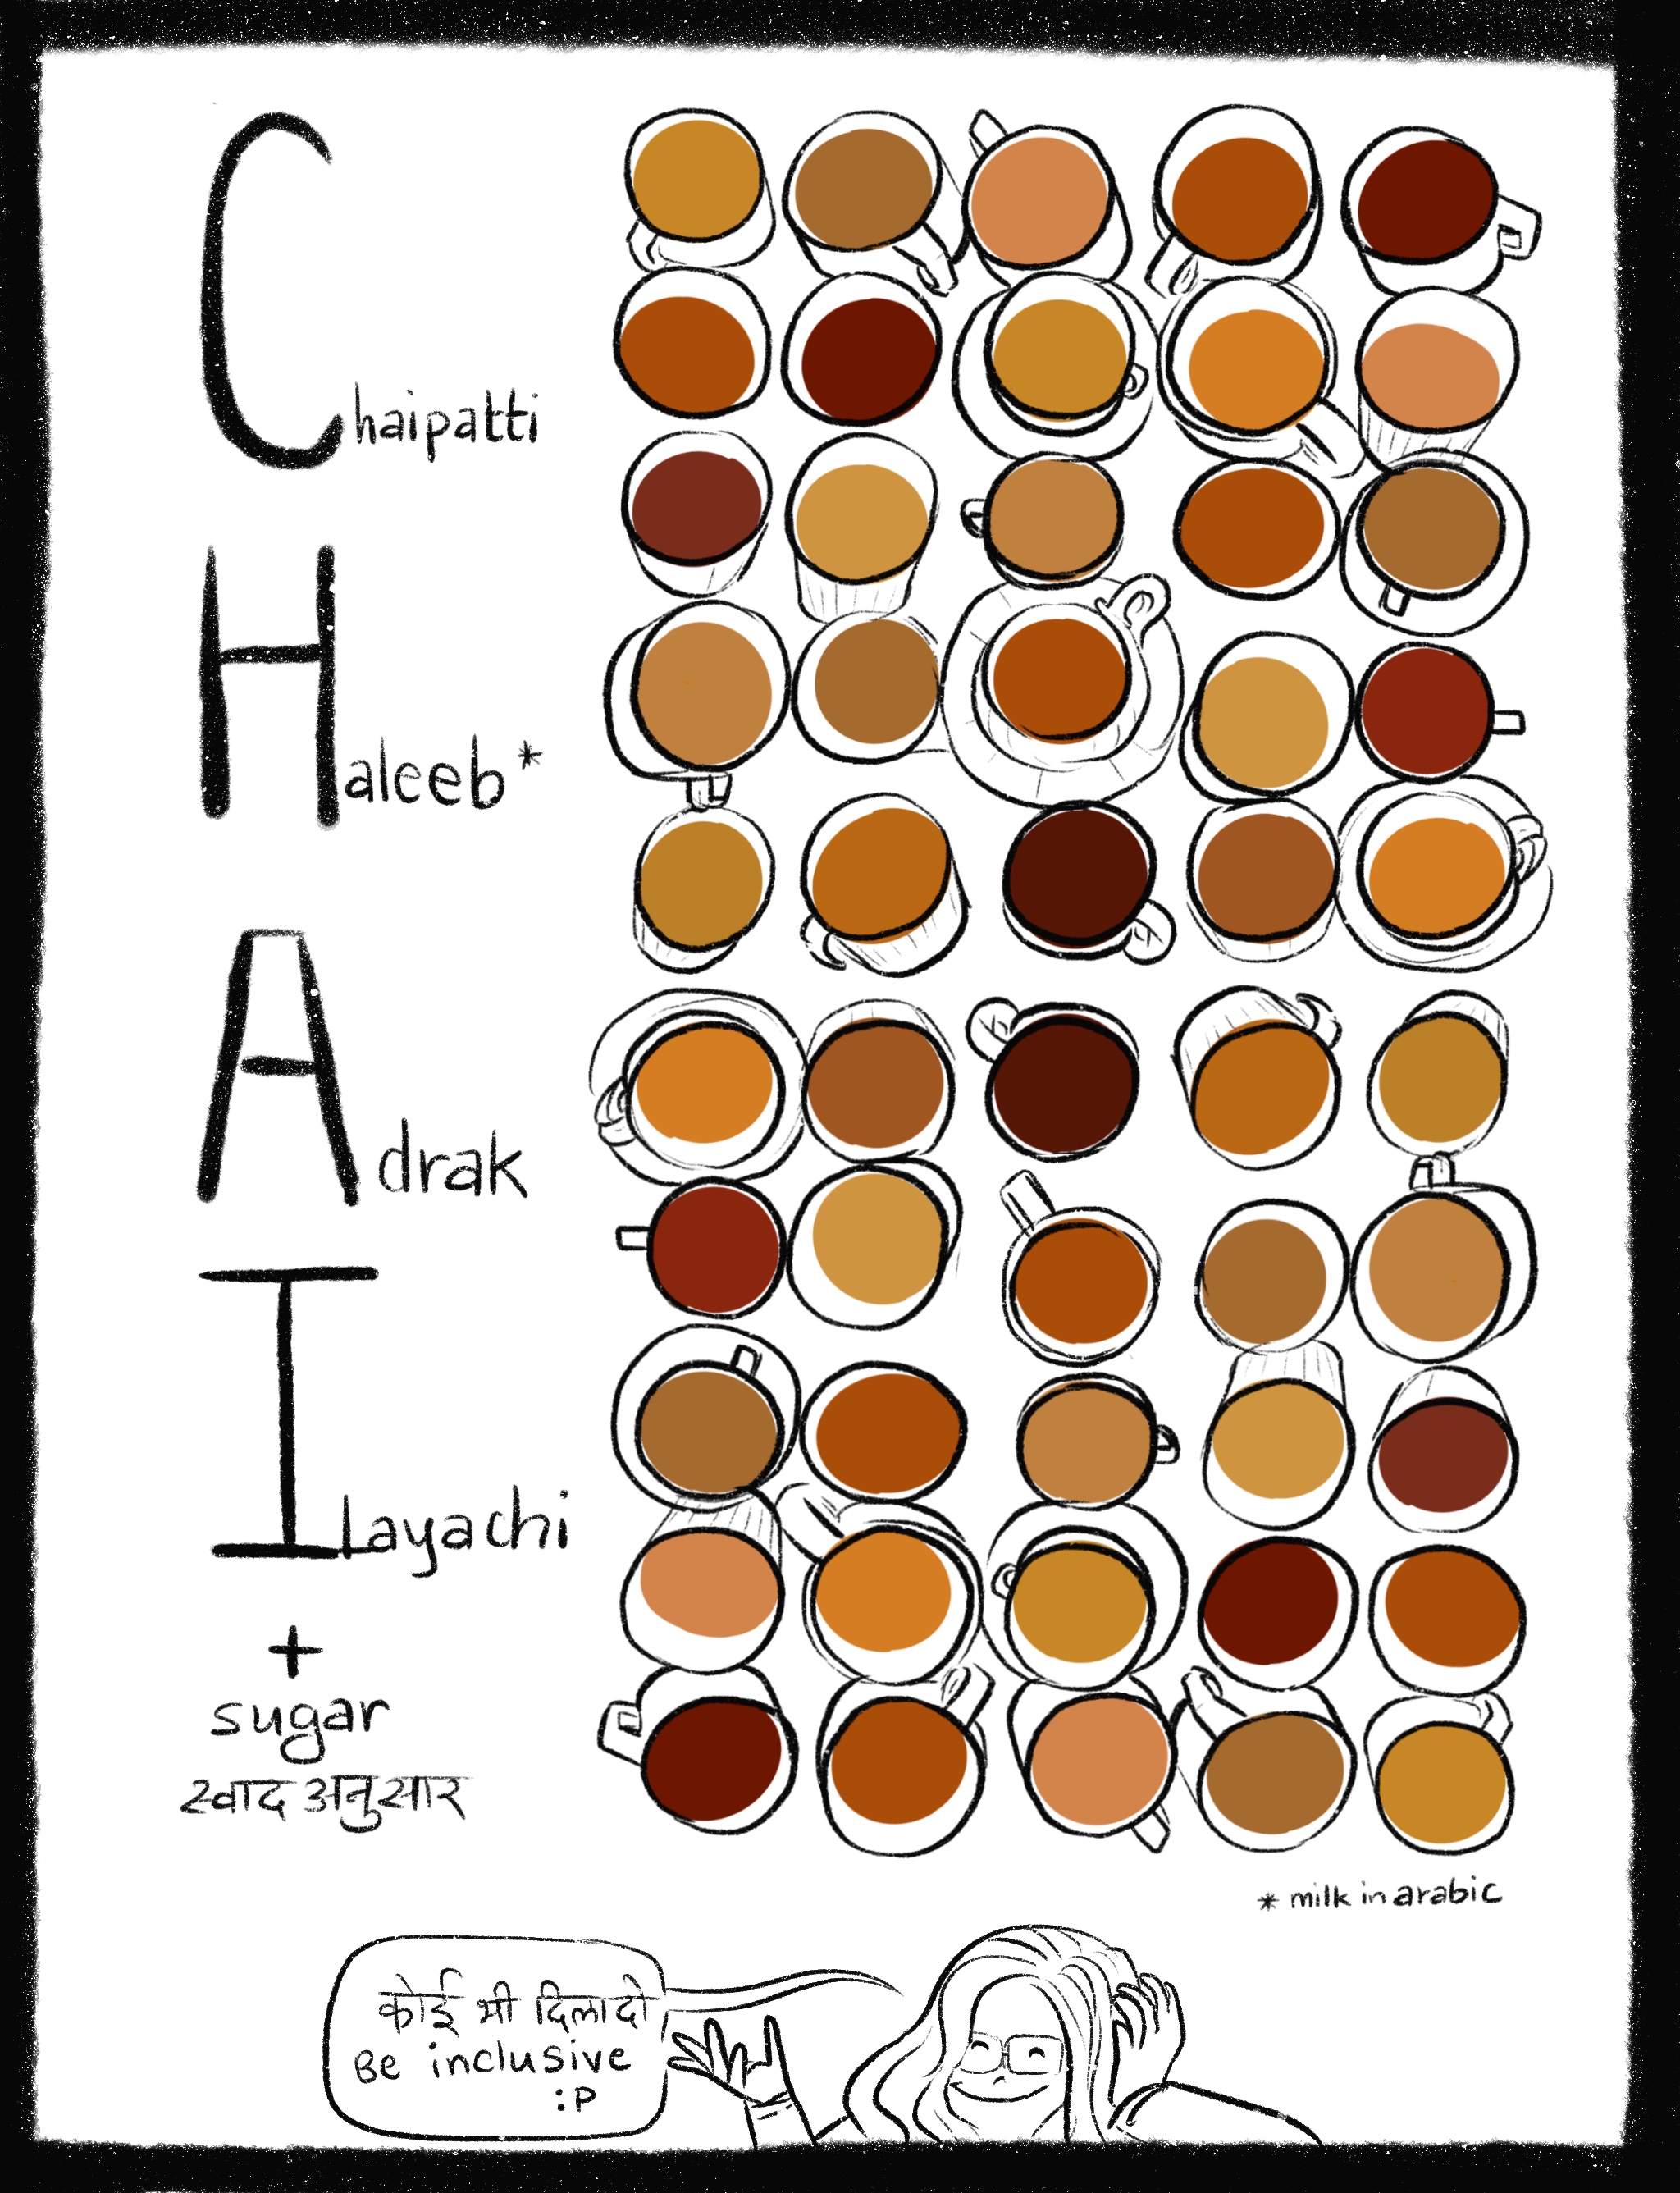 Chaipatti
Haleeb*
Adrak
Ilayachi
+
sugar
स्वाद अनुसार
* milk in arabic
कोई भी दिलादो
Be inclusive
:P